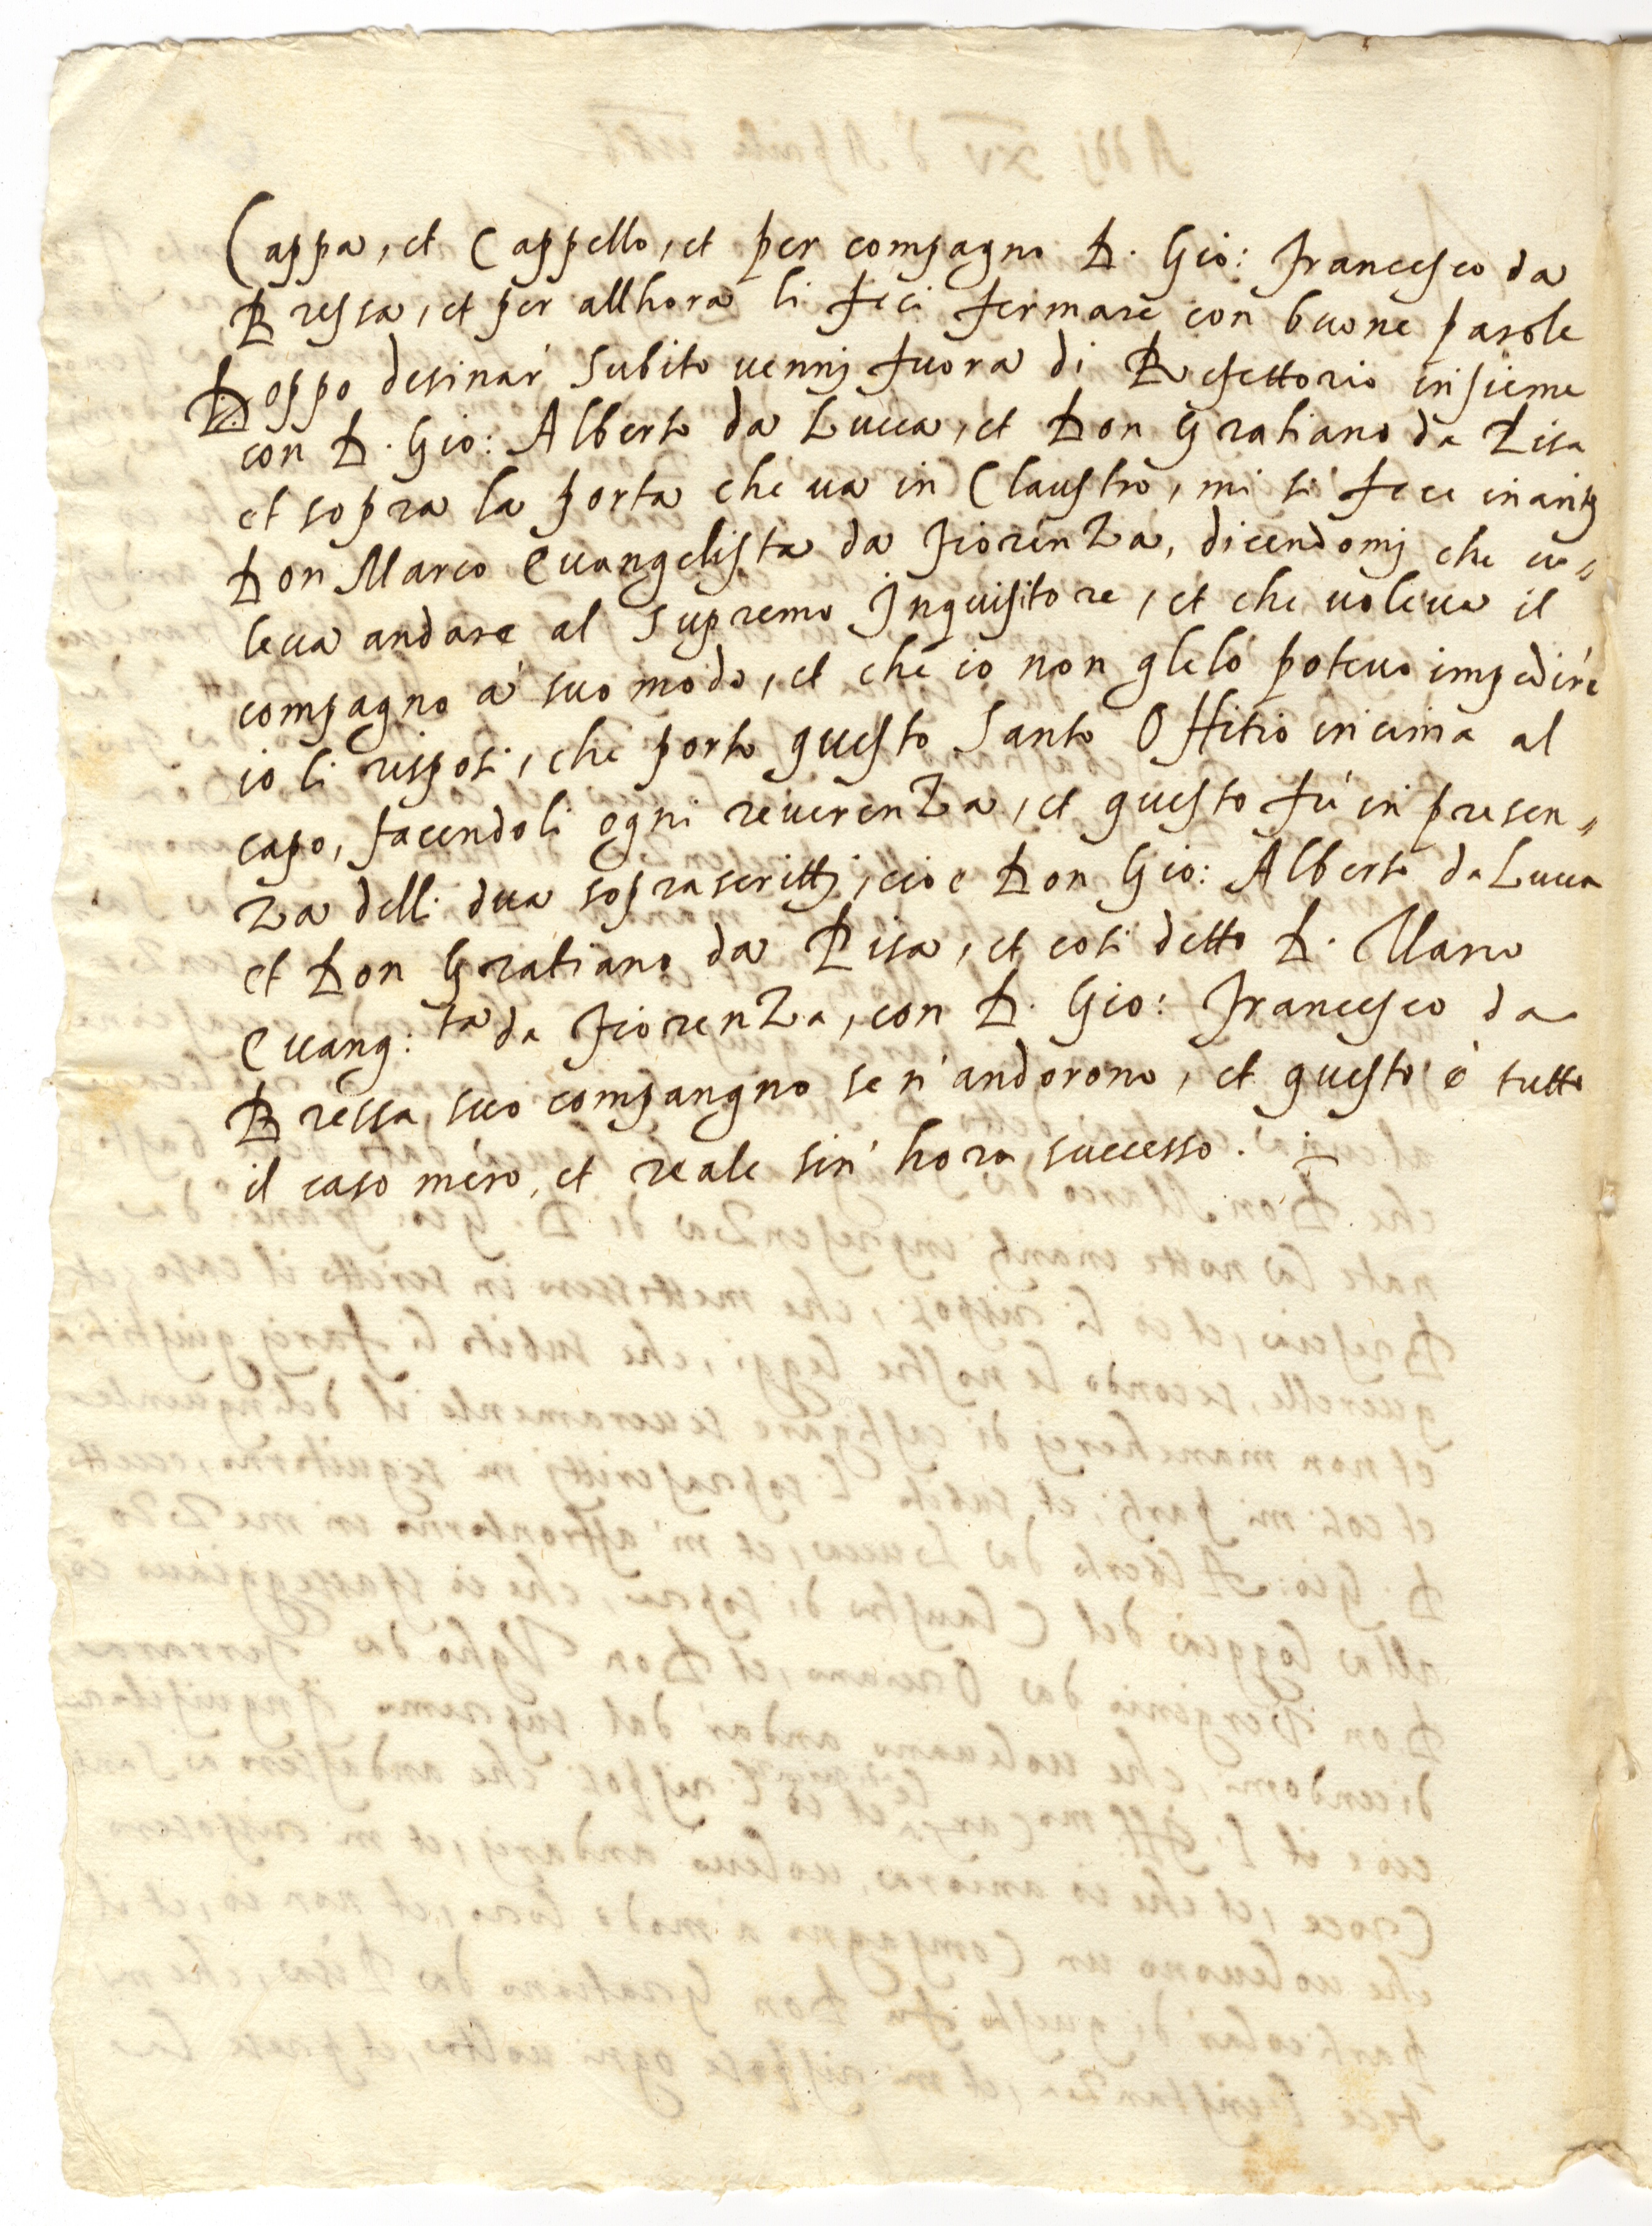 Cappa, et Cappello, et per compagno D. Gio: Francesco da
Bressa, et per allhora li feci fermare con buone parole
Doppo desinar' subito uennj fuora di Refettorio insieme
con D. Gio: Alberto da Lucca, et Don Gratiano da Pisa
et sopra la porta che ua in Claustro, mi si fece inantj
Don Marco Euangelista da Fiorenza, dicendomj che uo=
leua andare al supremo Inquisitore, et che uoleua il
compagno à suo modo, et che io non glelo poteuo impedire
io li risposi, che porto questo Santo Offitio in cima al
capo, facendoli ogni reuerenza, et questo fù in presen=
za delli dua soprascrittj, cioe Don Gio: Alberto da Lucca
et Don Gratiano da Pisa, et cosi detto D. Marco
Euang:ta da Fiorenza, con D. Gio: Francesco da
Bressa suo compangno se n'andorono, et questo è tutto
il caso mero, et reale sin' hora successo.